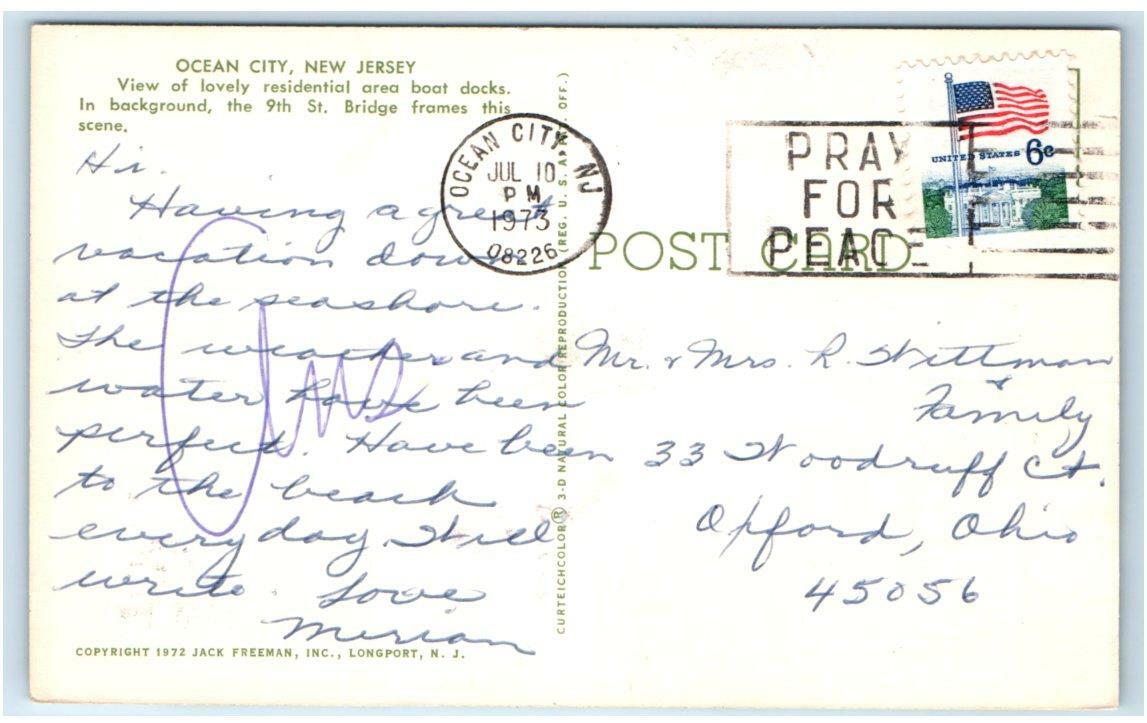 OCEAN CITY, NEW JERSEY
View of lovely residential area boat docks.
In background, the 9th St. Bridge frames this
scene.
Hi.
Having a great
vacation down
at the seashore.
The weather and
water have been
perfect. Have been
to the beach
everyday. Will
write. Love
Merian
COPYRIGHT 1972 JACK FREEMAN, INC., LONGPORT, N. J.
CURTEICHCOLOR® 3-D NATURAL COLOR REPRODUCTION (REG. U. S. APP'T. OFF.)
OCEAN CITY NJ
JUL 10
PM
1973
08226
PRAY
FOR
PEACE
UNITED STATES 6c
POST CARD
Mr. & Mrs. R. Wittman
&
Family
33 Woodruff Ct.
Oxford, Ohio
45056